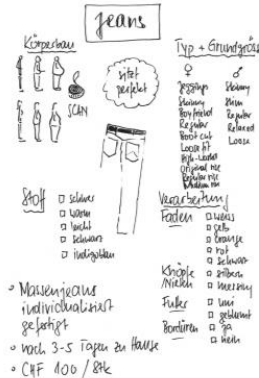 jeans
Körperbau
SCAN
sitzt
perfekt
Typ + Grundgröss
♀ ♂
Jeggings
Skinny
Boyfriend
Regular
Boot cut
Loose fit
High-waisted
Original rise
Regular rise
Medium rise
Skinny
Slim
Regular
Relaxed
Loose
Stoff
□ schwer
□ warm
□ leicht
□ schwarz
□ indigoblau
Verarbeitung
Faden □ weiss
□ gelb
□ orange
□ rot
□ schwarz
Knöpfe □ silbern
/Nieten □ messing
Futter □ uni
□ geblümt
Bordüren □ ja
□ nein
• Massenjeans
individualisiert
gefertigt
• nach 3-5 Tagen zu Hause
• CHF 100 / Stk